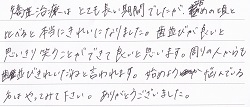 矯正治療は とても長い期間でしたが、初めの頃と
比べると 本当にきれいになりました。歯並びが良いと
思いきり 笑うことができて 良いと思います。周りの人からも
歯並びきれいだねと 言われます。始めようか 悩んでいる
方は やってみて下さい。ありがとうございました。